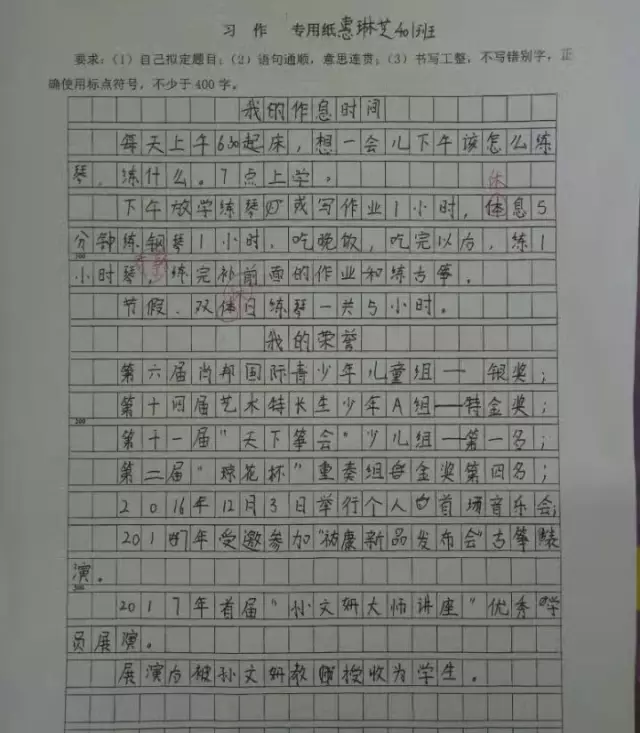 习 作 专用纸 惠琳芝 401班
要求：(1) 自己拟定题目；(2) 语句通顺，意思连贯；(3) 书写工整，不写错别字，正
确使用标点符号，不少于 400 字。
我的作息时间
每天上午6:30起床，想一会儿下午该怎么练
琴，练什么。7点上学。
休
下午放学练琴或写作业1小时，体息5
分钟练钢琴1小时，吃晚饭，吃完以后，练1
小时琴，练完补前面的作业和练古筝。
节假、双体日练琴一共5小时。
我的荣誉
第六届肖邦国际青少年儿童组——银奖；
第十四届艺术特长生少年A组——特金奖；
第十一届"天下筝会"少儿组——第一名；
第二届"琼花杯"重奏组金奖第四名；
2016年12月3日举行个人首场音乐会；
2017年受邀参加"祐康新品发布会"古筝表
演。
2017年首届"孙文妍大师讲座"优秀学
员展演。
展演后被孙文妍教授收为学生。